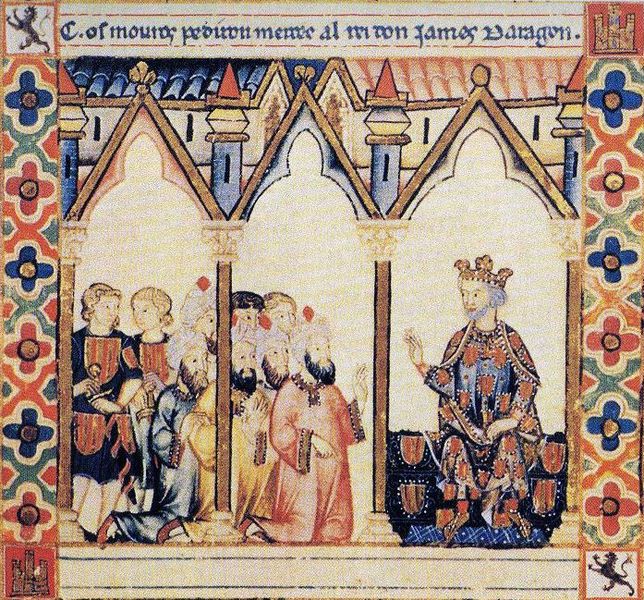 C.os mouros pediron merçee al rei don James D aragon.